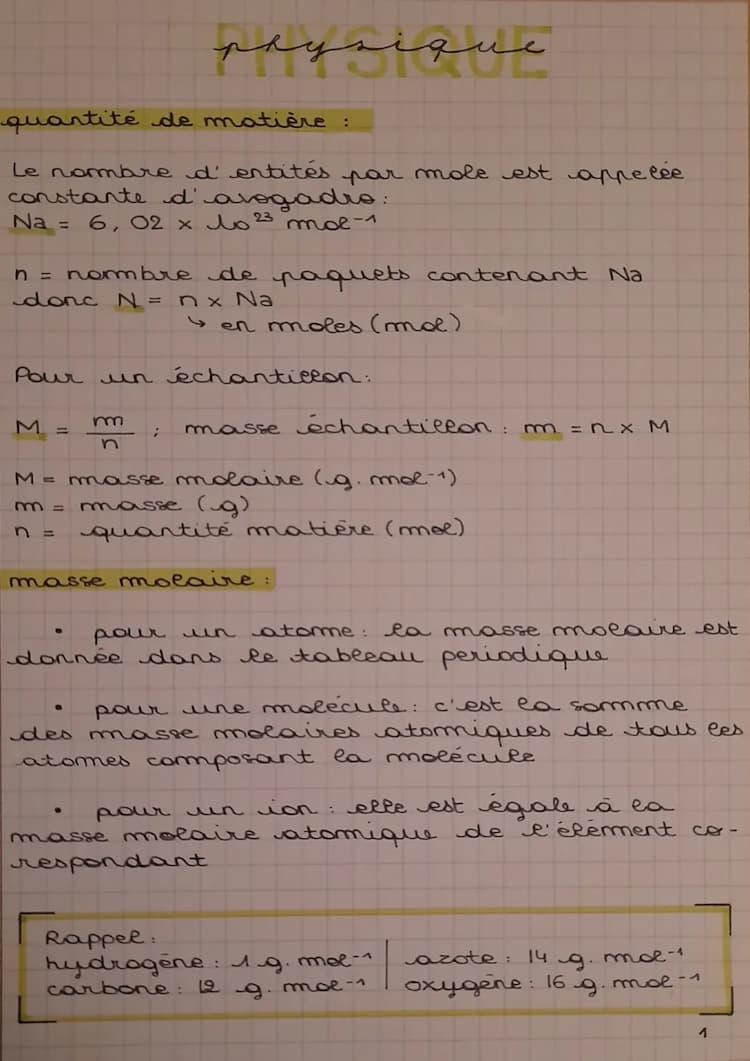 PHYSIQUE
physique
quantité de matière :
Le nombre d'entités par mole est appelée
constante d'avogadro :
Na = 6,02 x 10²³ mol⁻¹
n = nombre de paquets contenant Na
donc N = n x Na
↳ en moles (mol)
Pour un échantillon :
M = m/n ; masse échantillon : m = n x M
M = masse molaire (g. mol⁻¹)
m = masse (g)
n = quantité matière (mol)
masse molaire :
• pour un atome : la masse molaire est
donnée dans le tableau periodique
• pour une molécule : c'est la somme
des masse molaires atomiques de tous les
atomes composant la molécule
• pour un ion : elle est égale à la
masse molaire atomique de l'élément co-
respondant
Rappel :
hydrogène : 1 g. mol⁻¹ | azote : 14 g. mol⁻¹
carbone : 12 g. mol⁻¹ | oxygène : 16 g. mol⁻¹
1